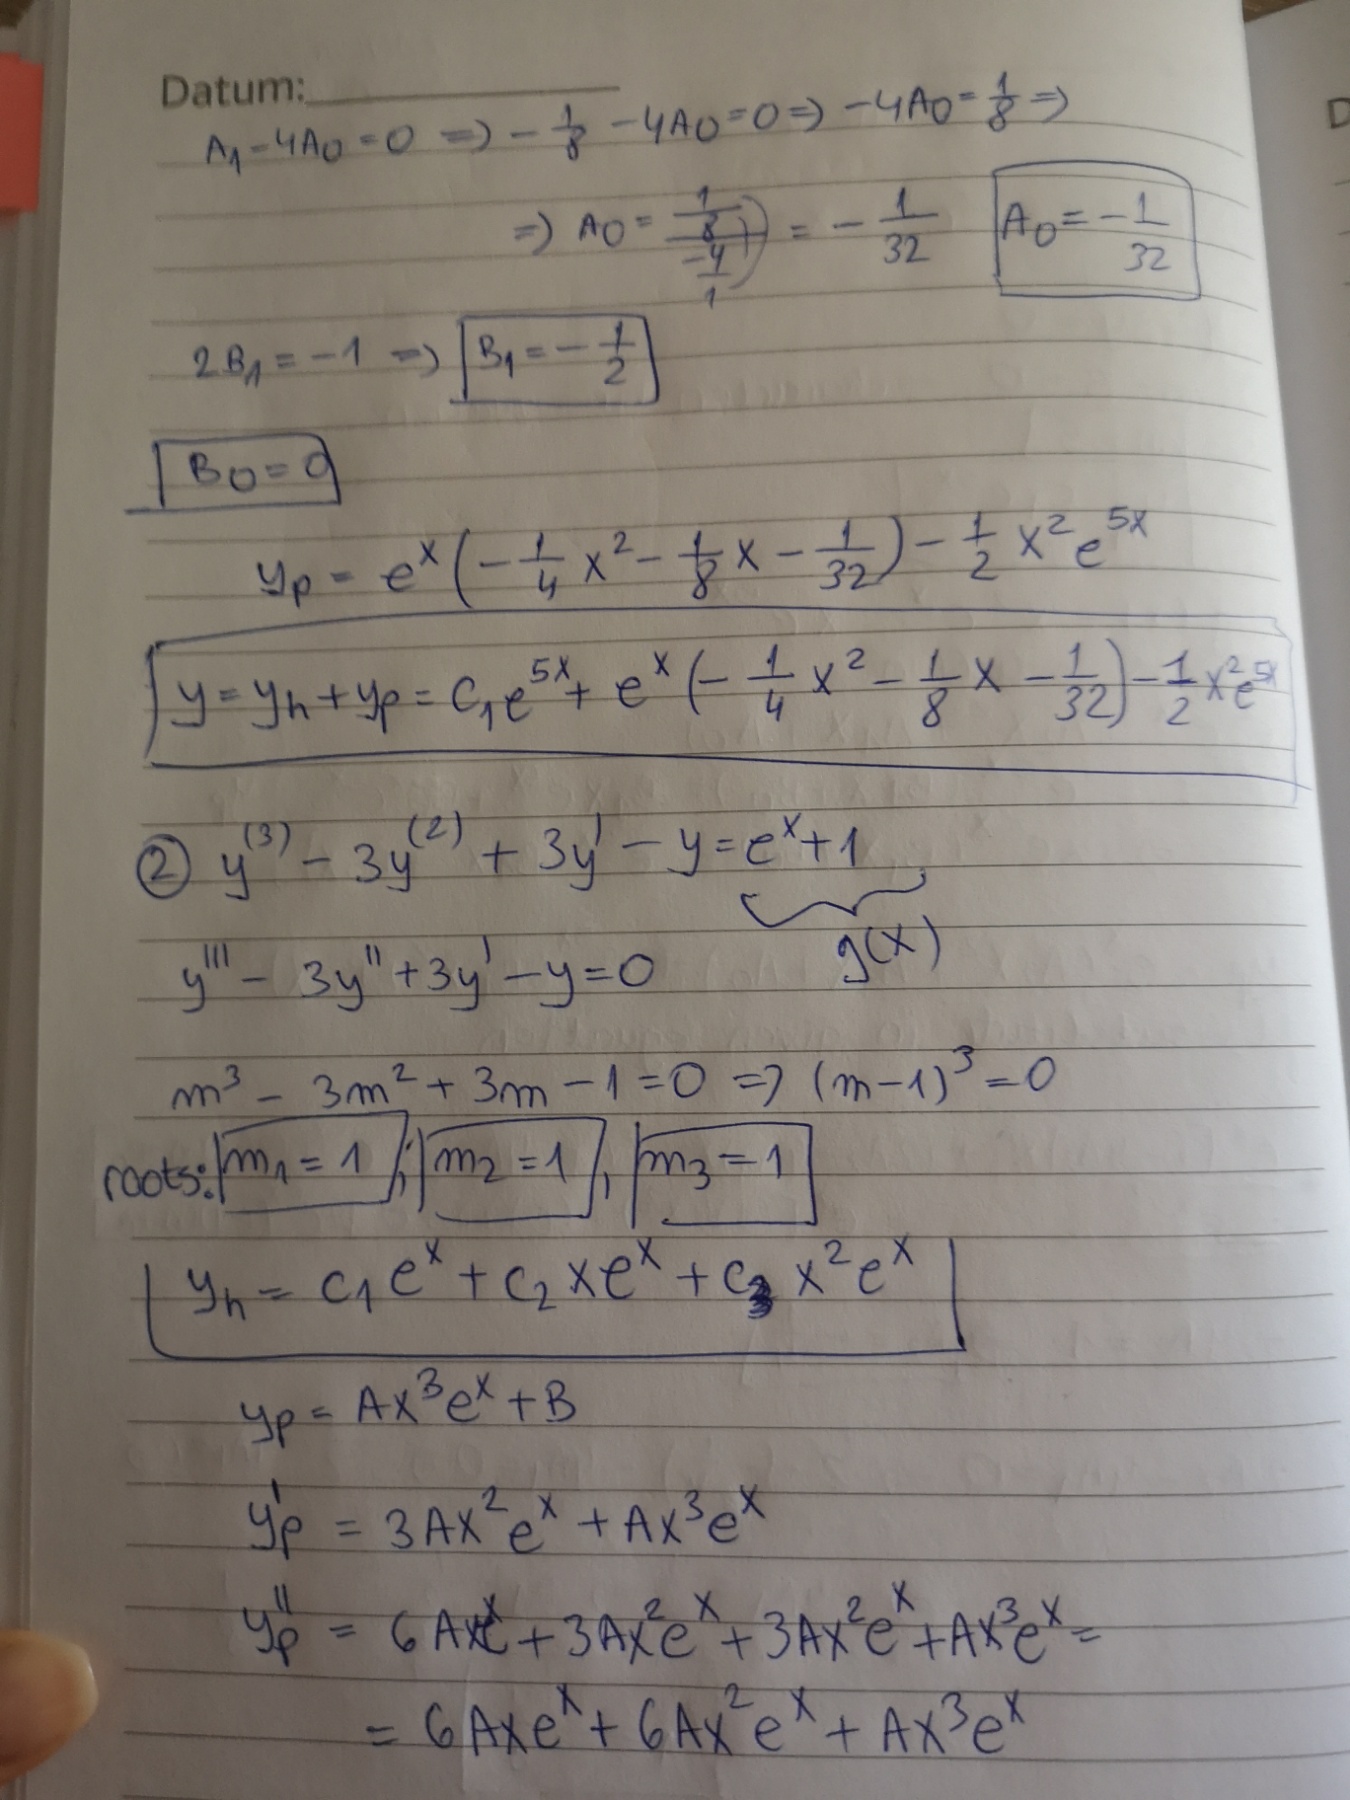 Datum:
A₁-4A₀=0 => -1/8 -4A₀=0 => -4A₀=1/8 =>
=> A₀ = (1/8)/(-4/1) = -1/32 A₀=-1/32
2B₁=-1 => B₁=-1/2
B₀=0
yp = eˣ(-1/4 x² - 1/8 x - 1/32) - 1/2 x² e⁵ˣ
y=yh+yp = C₁e⁵ˣ + eˣ(-1/4 x² - 1/8 x - 1/32) - 1/2 x²e⁵ˣ
② y⁽³⁾ - 3y⁽²⁾ + 3y' - y = eˣ+1
g(x)
y''' - 3y'' + 3y' - y = 0
m³ - 3m² + 3m - 1 = 0 => (m-1)³ = 0
roots: m₁ = 1 ; m₂ = 1 , m₃ = 1
yh = C₁eˣ + C₂xeˣ + C₃x²eˣ
yp = Ax³eˣ + B
yp' = 3Ax²eˣ + Ax³eˣ
yp'' = 6Axeˣ + 3Ax²eˣ + 3Ax²eˣ + Ax³eˣ =
= 6Axeˣ + 6Ax²eˣ + Ax³eˣ